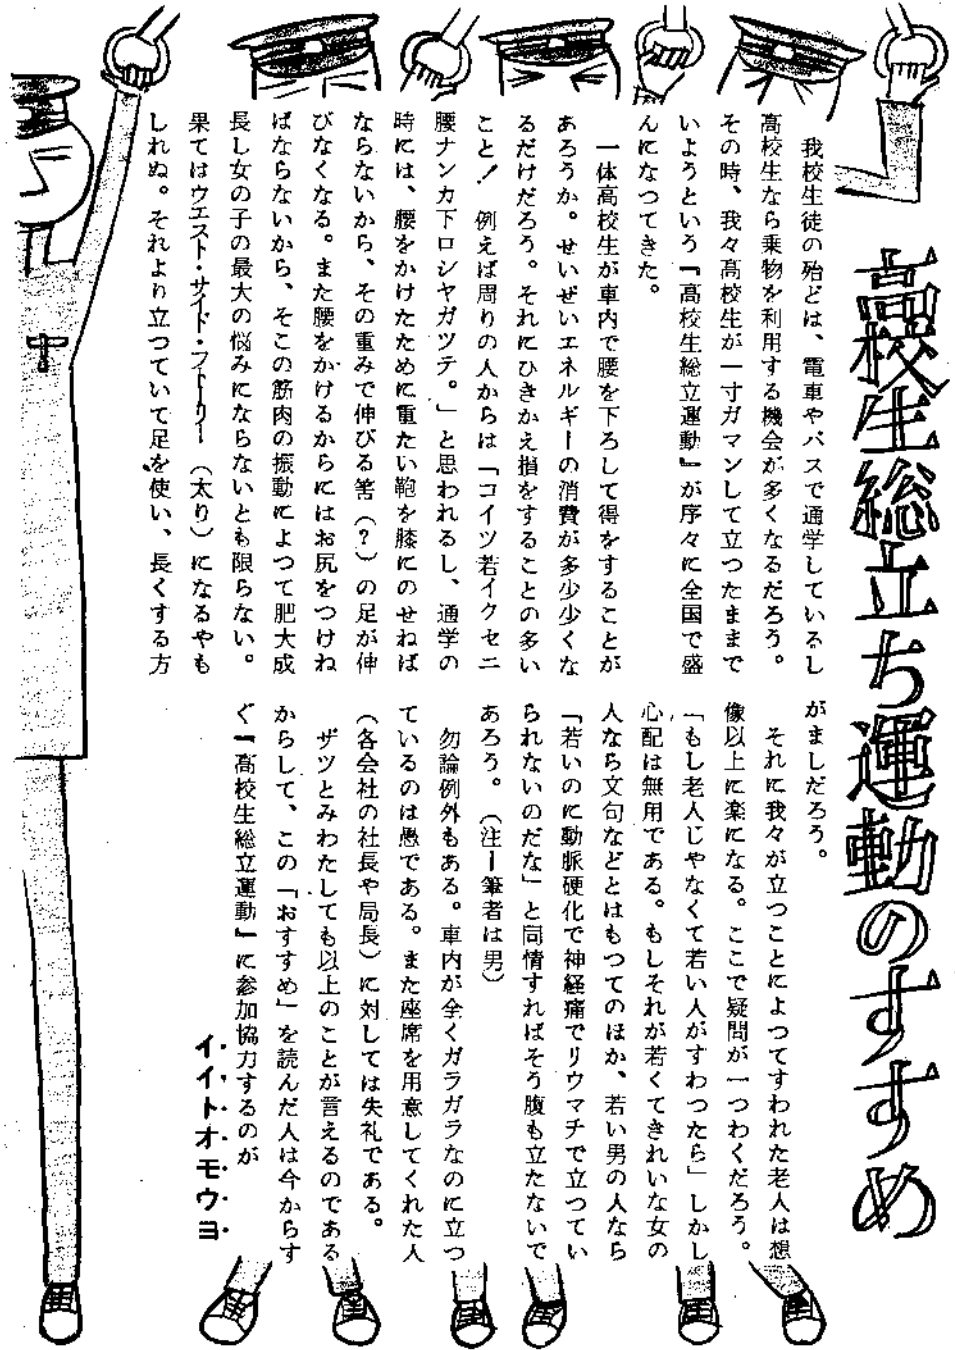 高校生総立ち運動のすすめ
我校生徒の殆どは、電車やバスで通学しているし
高校生なら乗物を利用する機会が多くなるだろう。
その時、我々高校生が一寸ガマンして立つたままで
いようという『高校生総立運動』が序々に全国で盛
んになつてきた。
一体高校生が車内で腰を下ろして得をすることが
あろうか。せいぜいエネルギーの消費が多少少くな
るだけだろう。それにひきかえ損をすることの多い
こと！例えば周りの人からは「コイツ若イクセニ
腰ナンカ下ロシヤガツテ。」と思われるし、通学の
時には、腰をかけたために重たい鞄を膝にのせねば
ならないから、その重みで伸びる筈（？）の足が伸
びなくなる。また腰をかけるからにはお尻をつけね
ばならないから、そこの筋肉の振動によつて肥大成
長し女の子の最大の悩みにならないとも限らない。
果てはウエスト・サイド・フトーリー（太り）になるやも
しれぬ。それより立つていて足を使い、長くする方
がましだろう。
それに我々が立つことによつてすわれた老人は想
像以上に楽になる。ここで疑問が一つわくだろう。
「もし老人じやなくて若い人がすわつたら」しかし
心配は無用である。もしそれが若くてきれいな女の
人なら文句などとはもつてのほか、若い男の人なら
「若いのに動脈硬化で神経痛でリウマチで立つてい
られないのだな」と同情すればそう腹も立たないで
あろう。（注ー筆者は男）
勿論例外もある。車内が全くガラガラなのに立つ
ているのは愚である。また座席を用意してくれた人
（各会社の社長や局長）に対しては失礼である。
ザツとみわたしても以上のことが言えるのである
からして、この「おすすめ」を読んだ人は今からす
ぐ『高校生総立運動』に参加協力するのが
イイトオモウヨ